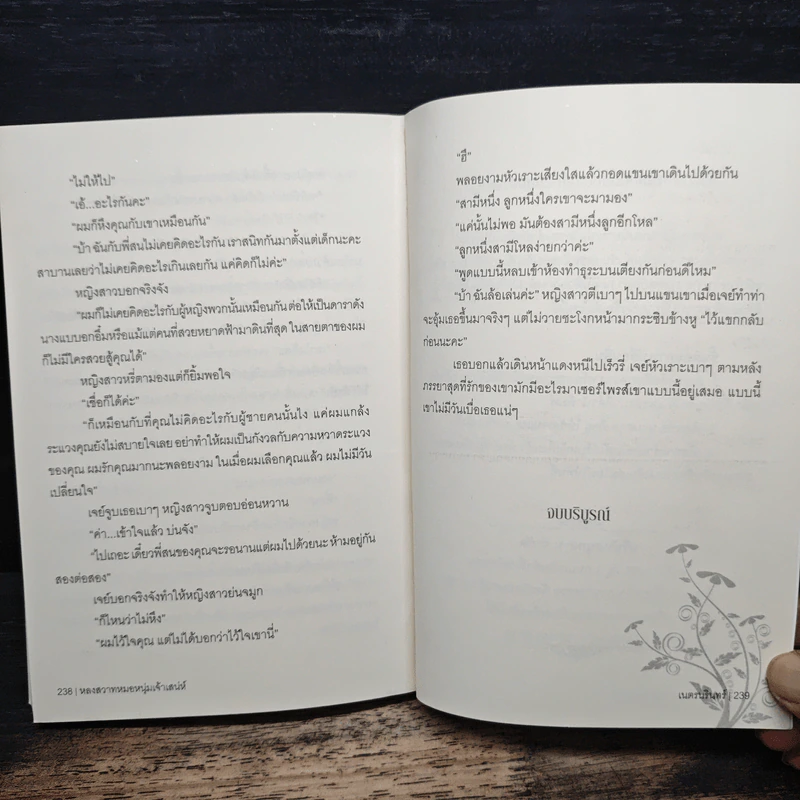 "ไม่ให้ไป"
"เอ้...อะไรกันคะ"
"ผมก็หึงคุณกับเขาเหมือนกัน"
"บ้า ฉันกับพี่สนไม่เคยคิดอะไรกัน เราสนิทกันมาตั้งแต่เด็กนะคะ
สาบานเลยว่าไม่เคยคิดอะไรเกินเลยกัน แค่คิดก็ไม่ค่ะ"
หญิงสาวบอกจริงจัง
"ผมก็ไม่เคยคิดอะไรกับผู้หญิงพวกนั้นเหมือนกัน ต่อให้เป็นดาราดัง
นางแบบอกอึ๋มหรือแม้แต่คนที่สวยหยาดฟ้ามาดินที่สุด ในสายตาของผม
ก็ไม่มีใครสวยสู้คุณได้"
หญิงสาวหรี่ตามองแต่ก็ยิ้มพอใจ
"เชื่อก็ได้ค่ะ"
"ก็เหมือนกับที่คุณไม่คิดอะไรกับผู้ชายคนนั้นไง แค่ผมแกล้ง
ระแวงคุณยังไม่สบายใจเลย อย่าทำให้ผมเป็นกังวลกับความหวาดระแวง
ของคุณ ผมรักคุณมากนะพลอยงาม ในเมื่อผมเลือกคุณแล้ว ผมไม่มีวัน
เปลี่ยนใจ"
เจย์จูบเธอเบาๆ หญิงสาวจูบตอบอ่อนหวาน
"ค่า...เข้าใจแล้ว บ่นจัง"
"ไปเถอะ เดี๋ยวพี่สนของคุณจะรอนานแต่ผมไปด้วยนะ ห้ามอยู่กัน
สองต่อสอง"
เจย์บอกจริงจังทำให้หญิงสาวย่นจมูก
"ก็ไหนว่าไม่หึง"
"ผมไว้ใจคุณ แต่ไม่ได้บอกว่าไว้ใจเขานี่"
238 | หลงสวาทหมอหนุ่มเจ้าเสน่ห์
"ฮึ"
พลอยงามหัวเราะเสียงใสแล้วกอดแขนเขาเดินไปด้วยกัน
"สามีหนึ่ง ลูกหนึ่งใครเขาจะมามอง"
"แค่นั้นไม่พอ มันต้องสามีหนึ่งลูกอีกโหล"
"ลูกหนึ่งสามีโหลง่ายกว่าค่ะ"
"พูดแบบนี้หลบเข้าห้องทำธุระบนเตียงกันก่อนดีไหม"
"บ้า ฉันล้อเล่นค่ะ" หญิงสาวตีเบาๆ ไปบนแขนเขาเมื่อเจย์ทำท่า
จะอุ้มเธอขึ้นมาจริงๆ แต่ไม่วายชะโงกหน้ามากระซิบข้างหู "ไว้แขกกลับ
ก่อนนะคะ"
เธอบอกแล้วเดินหน้าแดงหนีไปเร็วรี่ เจย์หัวเราะเบาๆ ตามหลัง
ภรรยาสุดที่รักของเขามักมีอะไรมาเซอร์ไพรส์เขาแบบนี้อยู่เสมอ แบบนี้
เขาไม่มีวันเบื่อเธอแน่ๆ
จบบริบูรณ์
เนตรนรินทร์ | 239